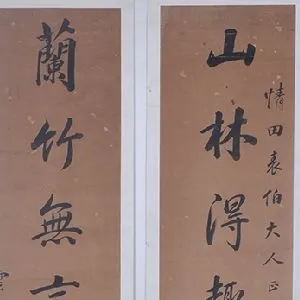 情田表伯大人正
山林得趣
蘭竹無言